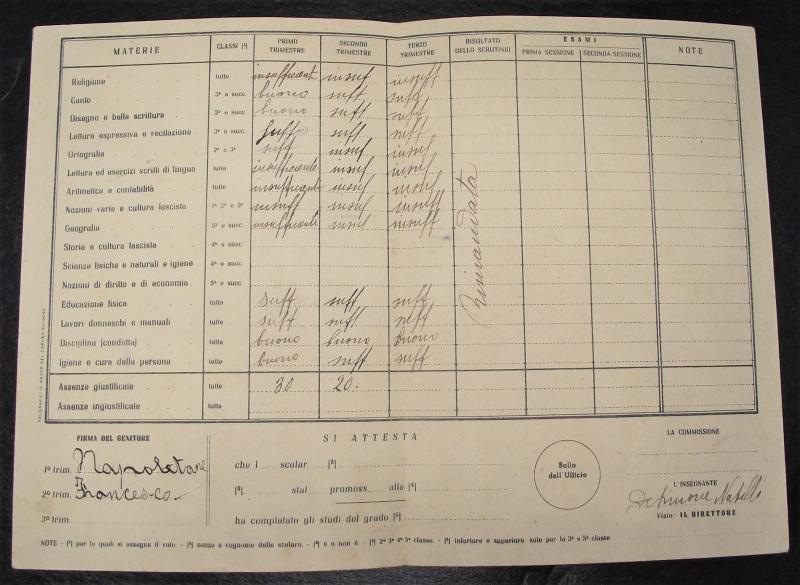 MATERIE CLASSI (¹) PRIMO TRIMESTRE SECONDO TRIMESTRE TERZO TRIMESTRE RISULTATO DELLO SCRUTINIO ESAMI PRIMA SESSIONE SECONDA SESSIONE NOTE
Religione tutte insufficiente insuf insuff
Canto 3ª e succ. buono suff suff
Disegno e bella scrittura 3ª e succ. buono suff suff
Lettura espressiva e recitazione 3ª e succ. suff suff suff
Ortografia 2ª e 3ª suff insuf insuf
Lettura ed esercizi scritti di lingua tutte insufficiente insuf insuf
Aritmetica e contabilità tutte insufficiente insuf insuf
Nozioni varie e cultura fascista 1ª 2ª e 3ª insuff insuf insuff
Geografia 3ª e succ. insufficiente insuf insuff
Storia e cultura fascista 4ª e succ.
Scienze fisiche e naturali e igiene 4ª e succ.
Nozioni di diritto e di economia 5ª e succ.
Educazione fisica tutte suff suff suff
Lavori donneschi e manuali tutte suff suff suff
Disciplina (condotta) tutte buono buono buono
Igiene e cura della persona tutte buono suff suff
Rimandata
Assenze giustificate tutte 30 20
Assenze ingiustificate tutte
FIRMA DEL GENITORE
1º trim. Napoletano
2º trim. Francesco
3º trim.
SI ATTESTA
che l scolar (²)
(³) stat promoss alla (⁴)
ha completato gli studi del grado (⁵)
Bollo dell'Ufficio
LA COMMISSIONE
L'INSEGNANTE
Visto: IL DIRETTORE
NOTE - (¹) per le quali si assegna il voto. - (²) nome e cognome dello scolaro. - (³) è o non è. - (⁴) 2ª 3ª 4ª 5ª classe. - (⁵) inferiore o superiore, solo per la 3ª e 5ª classe